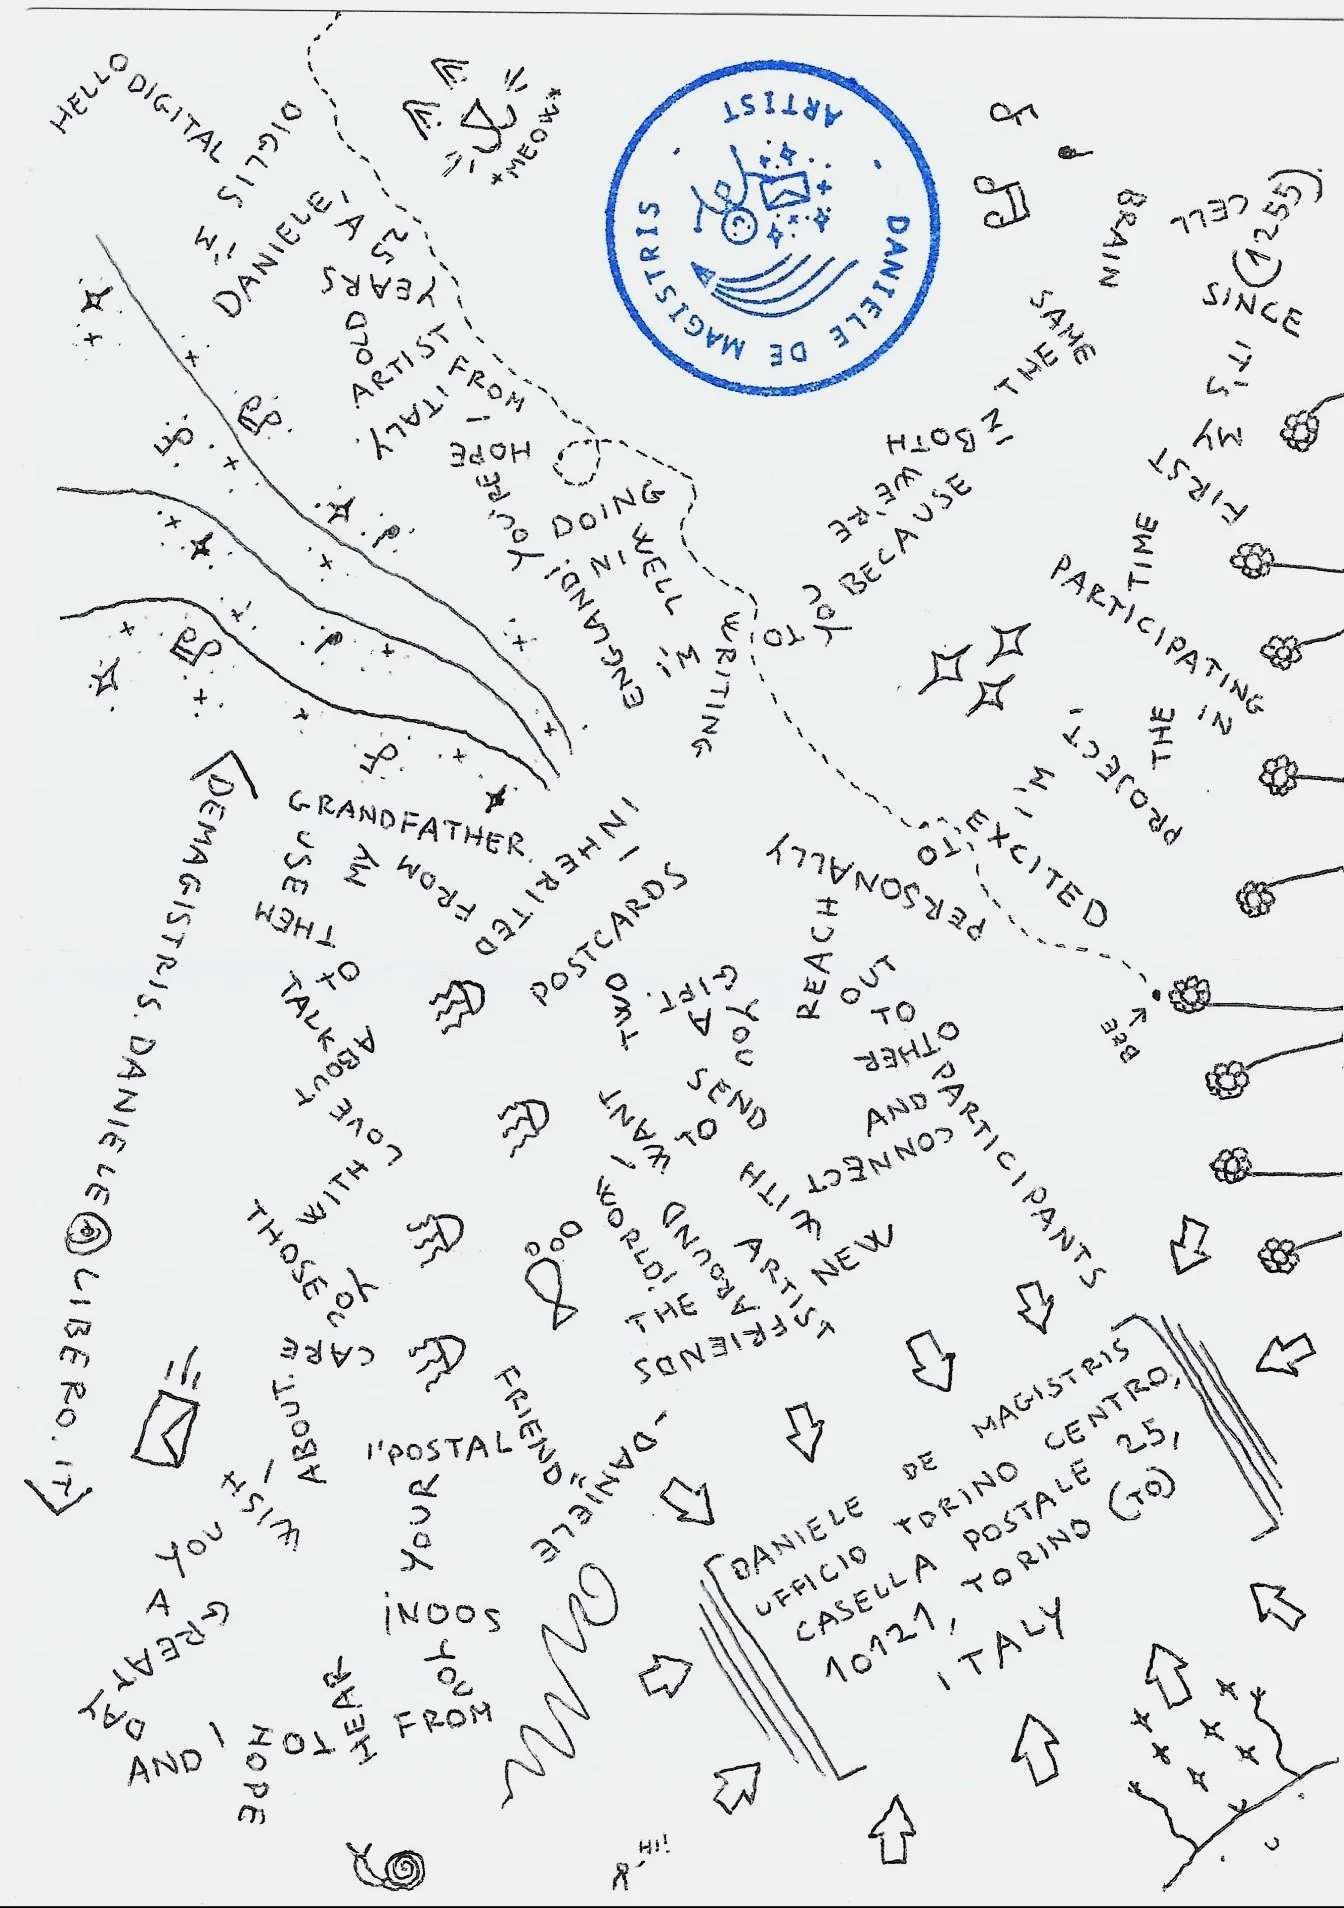 HELLO
DIGITAL
DIGLIS
I'M
DANIELE,
A
25
YEARS
OLD
ARTIST
FROM
ITALY.
I
HOPE
YOU'RE
DOING
WELL
IN
ENGLAND!
I'M
WRITING
TO
YOU
BECAUSE
WE'RE
BOTH
IN
THE
SAME
BRAIN
CELL
(1255).
SINCE
IT'S
MY
FIRST
TIME
PARTICIPATING
IN
THE
PROJECT,
I'M
EXCITED
TO
PERSONALLY
REACH
OUT
TO
OTHER
PARTICIPANTS
AND
CONNECT
WITH
NEW
ARTIST
FRIENDS
AROUND
THE
WORLD!
I
WANT
TO
SEND
YOU
A
GIFT.
TWO
POSTCARDS
I
INHERITED
FROM
MY
GRANDFATHER.
USE
THEM
TO
TALK
ABOUT
LOVE
WITH
THOSE
YOU
CARE
ABOUT.
I
WISH
YOU
A
GREAT
DAY
AND
I
HOPE
TO
HEAR
FROM
YOU
SOON!
YOUR
"POSTAL
FRIEND"
-DANIELE
*MEOW*
DANIELE DE MAGISTRIS
ARTIST
BEE
DEMAGISTRIS.DANIELE@LIBERO.IT
DANIELE DE MAGISTRIS
UFFICIO TORINO CENTRO,
CASELLA POSTALE 25,
10121, TORINO (TO)
ITALY
-HI!